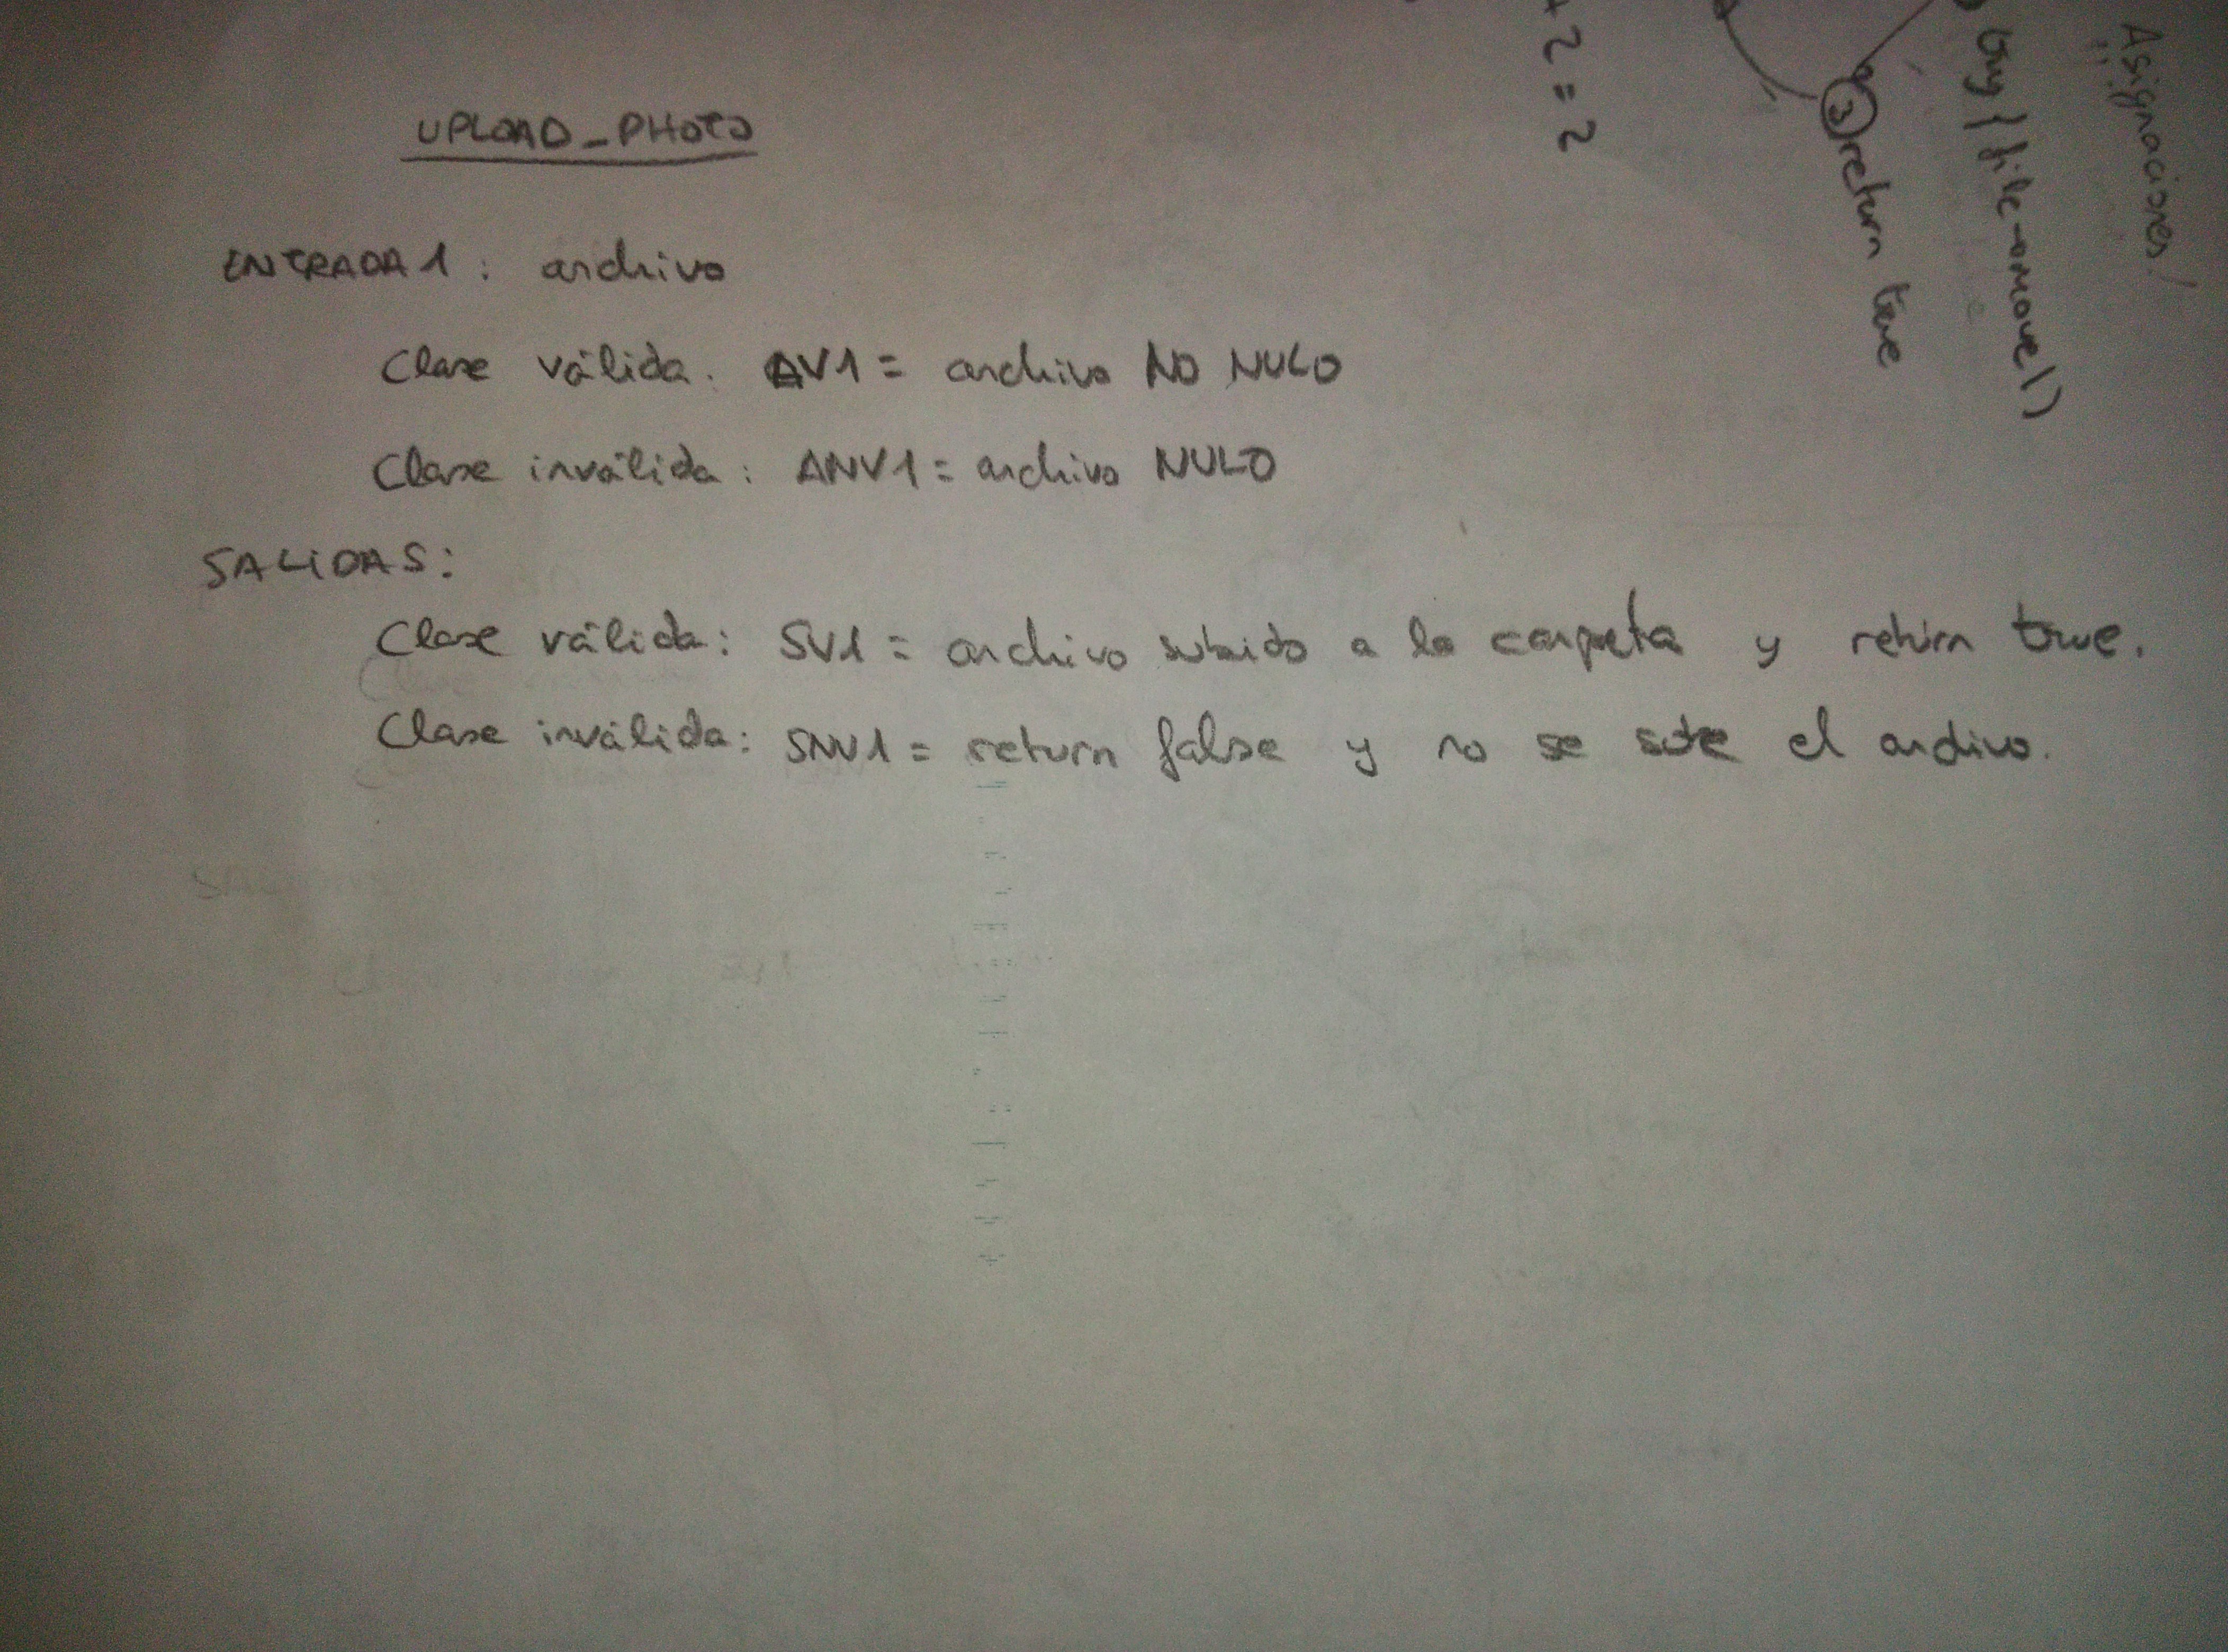 UPLOAD_PHOTO
ENTRADA 1 : archivo
Clase válida: AV1 = archivo NO NULO
Clase inválida : ANV1 = archivo NULO
SALIDAS:
Clase válida: SV1 = archivo subido a la carpeta y return true.
Clase inválida: SNV1 = return false y no se sube el archivo.
+ 2 = 2
3 return true
try {file->move()
Asignaciones